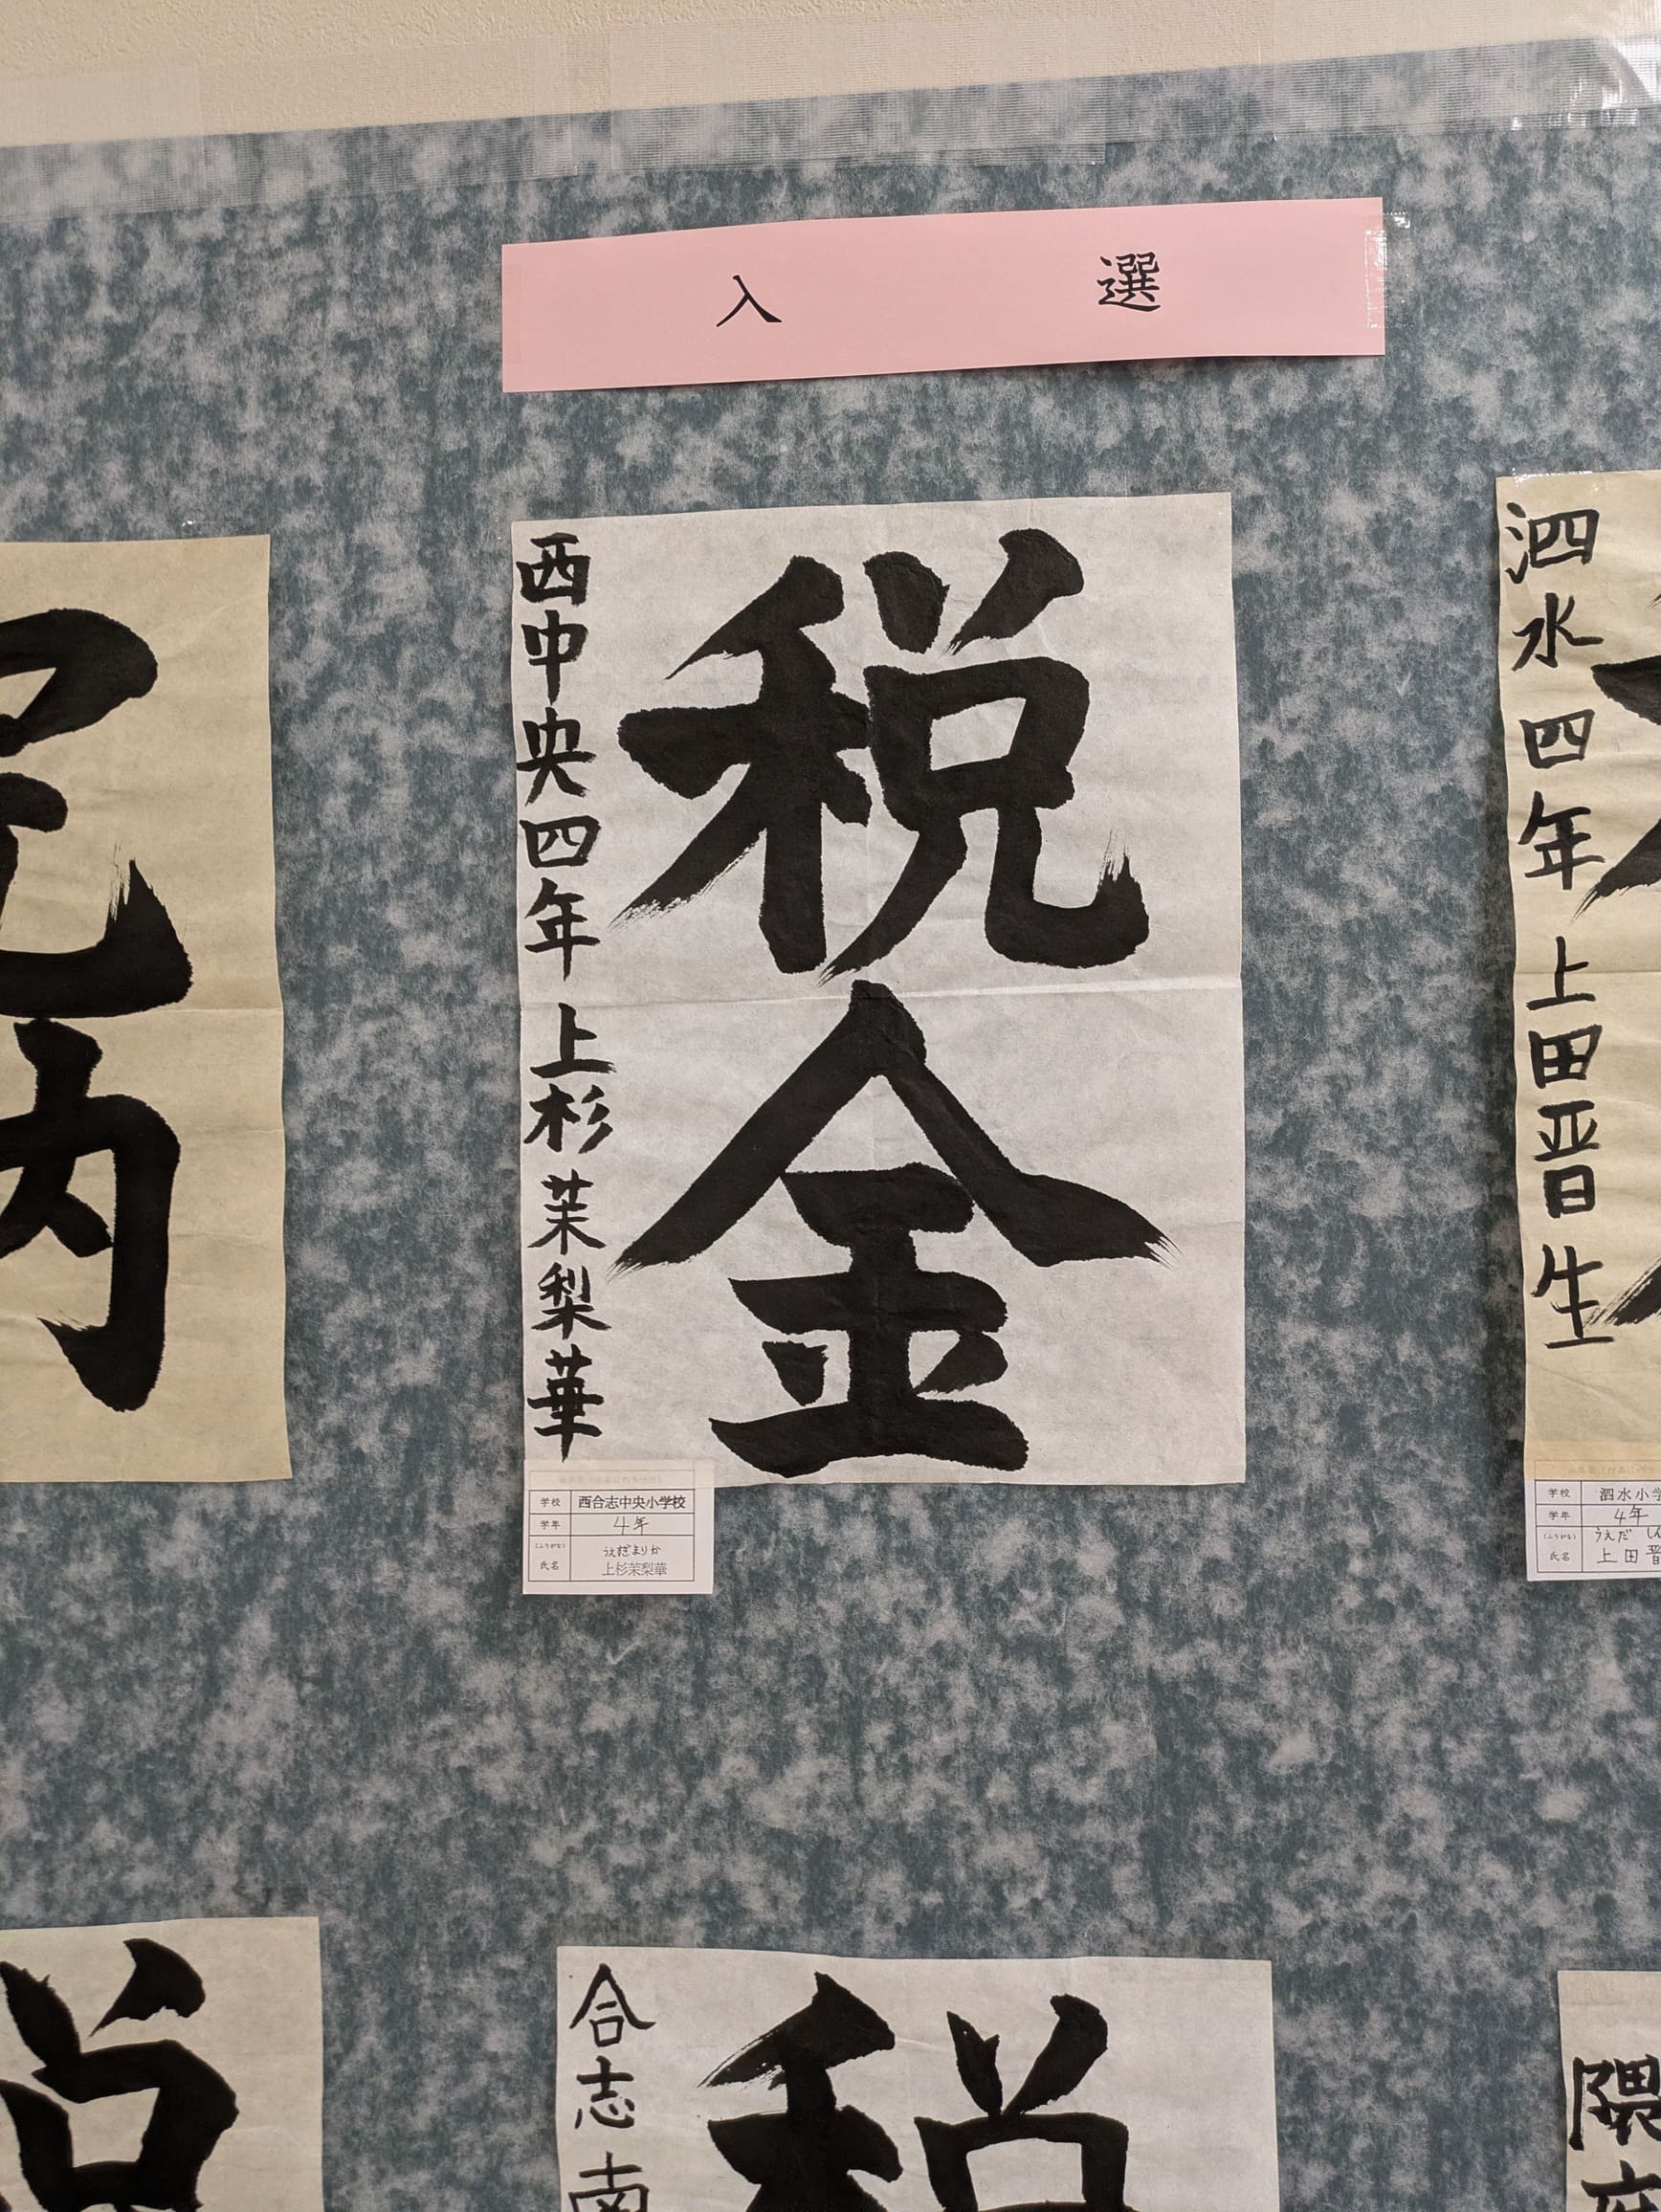 入選
税金
西中央四年 上杉茉梨華
学校 西合志中央小学校
学年 4年
(ふりがな) うえすぎまりか
氏名 上杉茉梨華
泗水四年 上田晋生
学校 泗水小学
学年 4年
(ふりがな) うえだ しん
氏名 上田晋
納
合志南
税